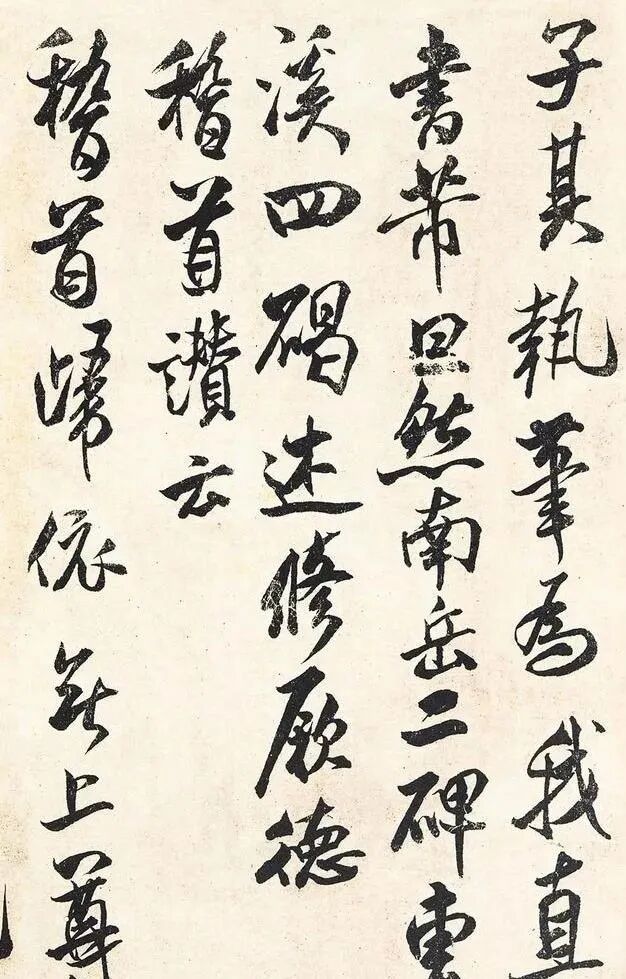 子其執筆為我直
書芾曰然南岳二碑東
溪四碣述修厥德
稽首讚云
稽首歸依無上尊